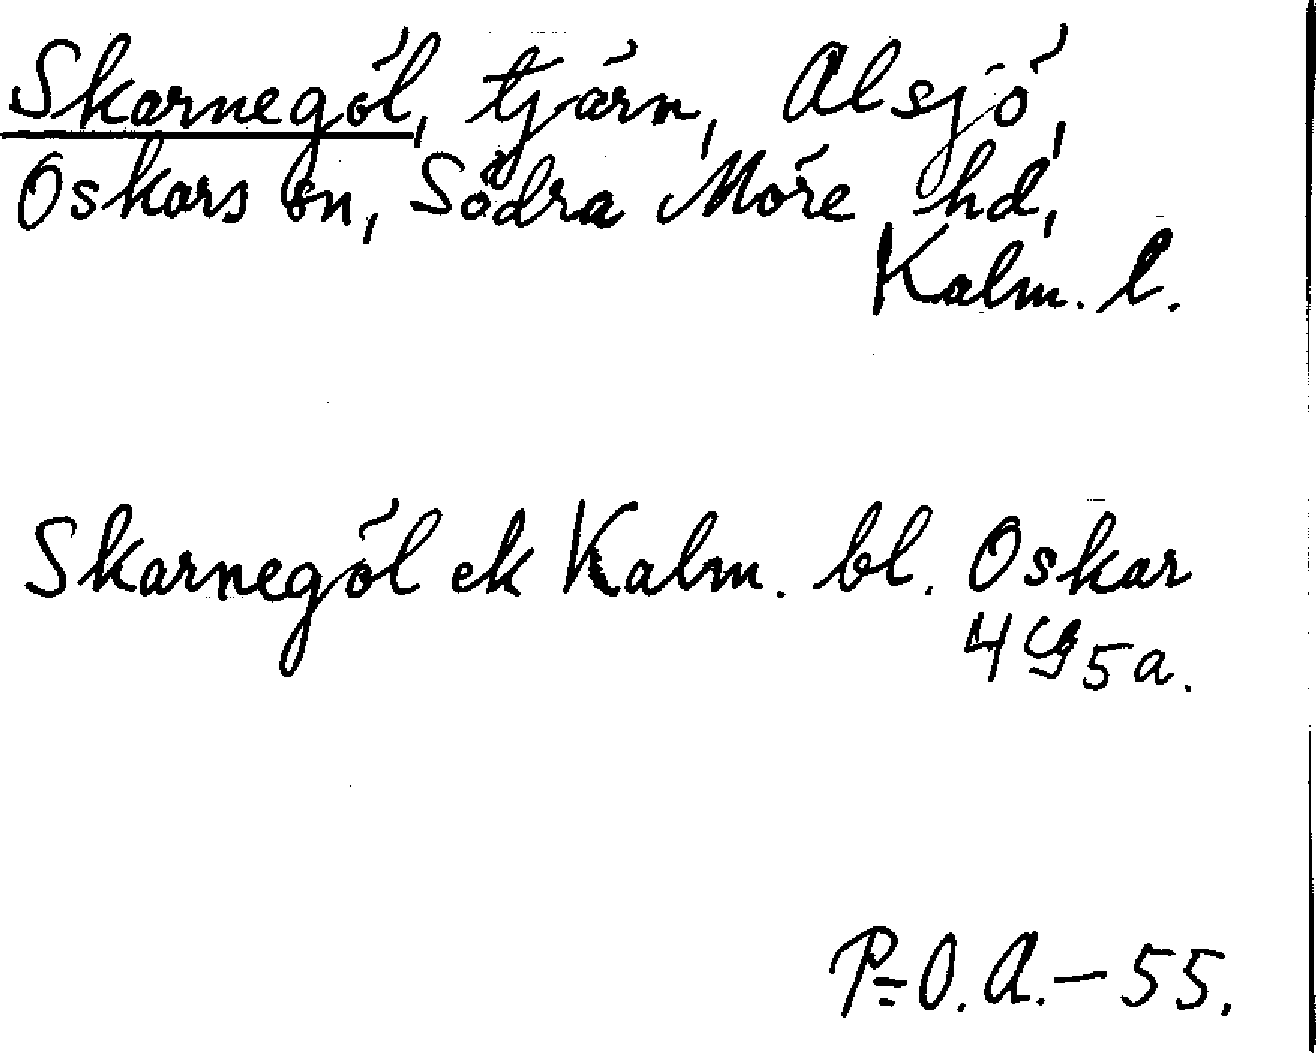 Skarnegöl, tjärn, Alsjö,
Oskars sn, Södra Möre hd,
Kalm. l.
Skarnegöl ek Kalm. bl. Oskar
4g5a.
P-O.A.—55.